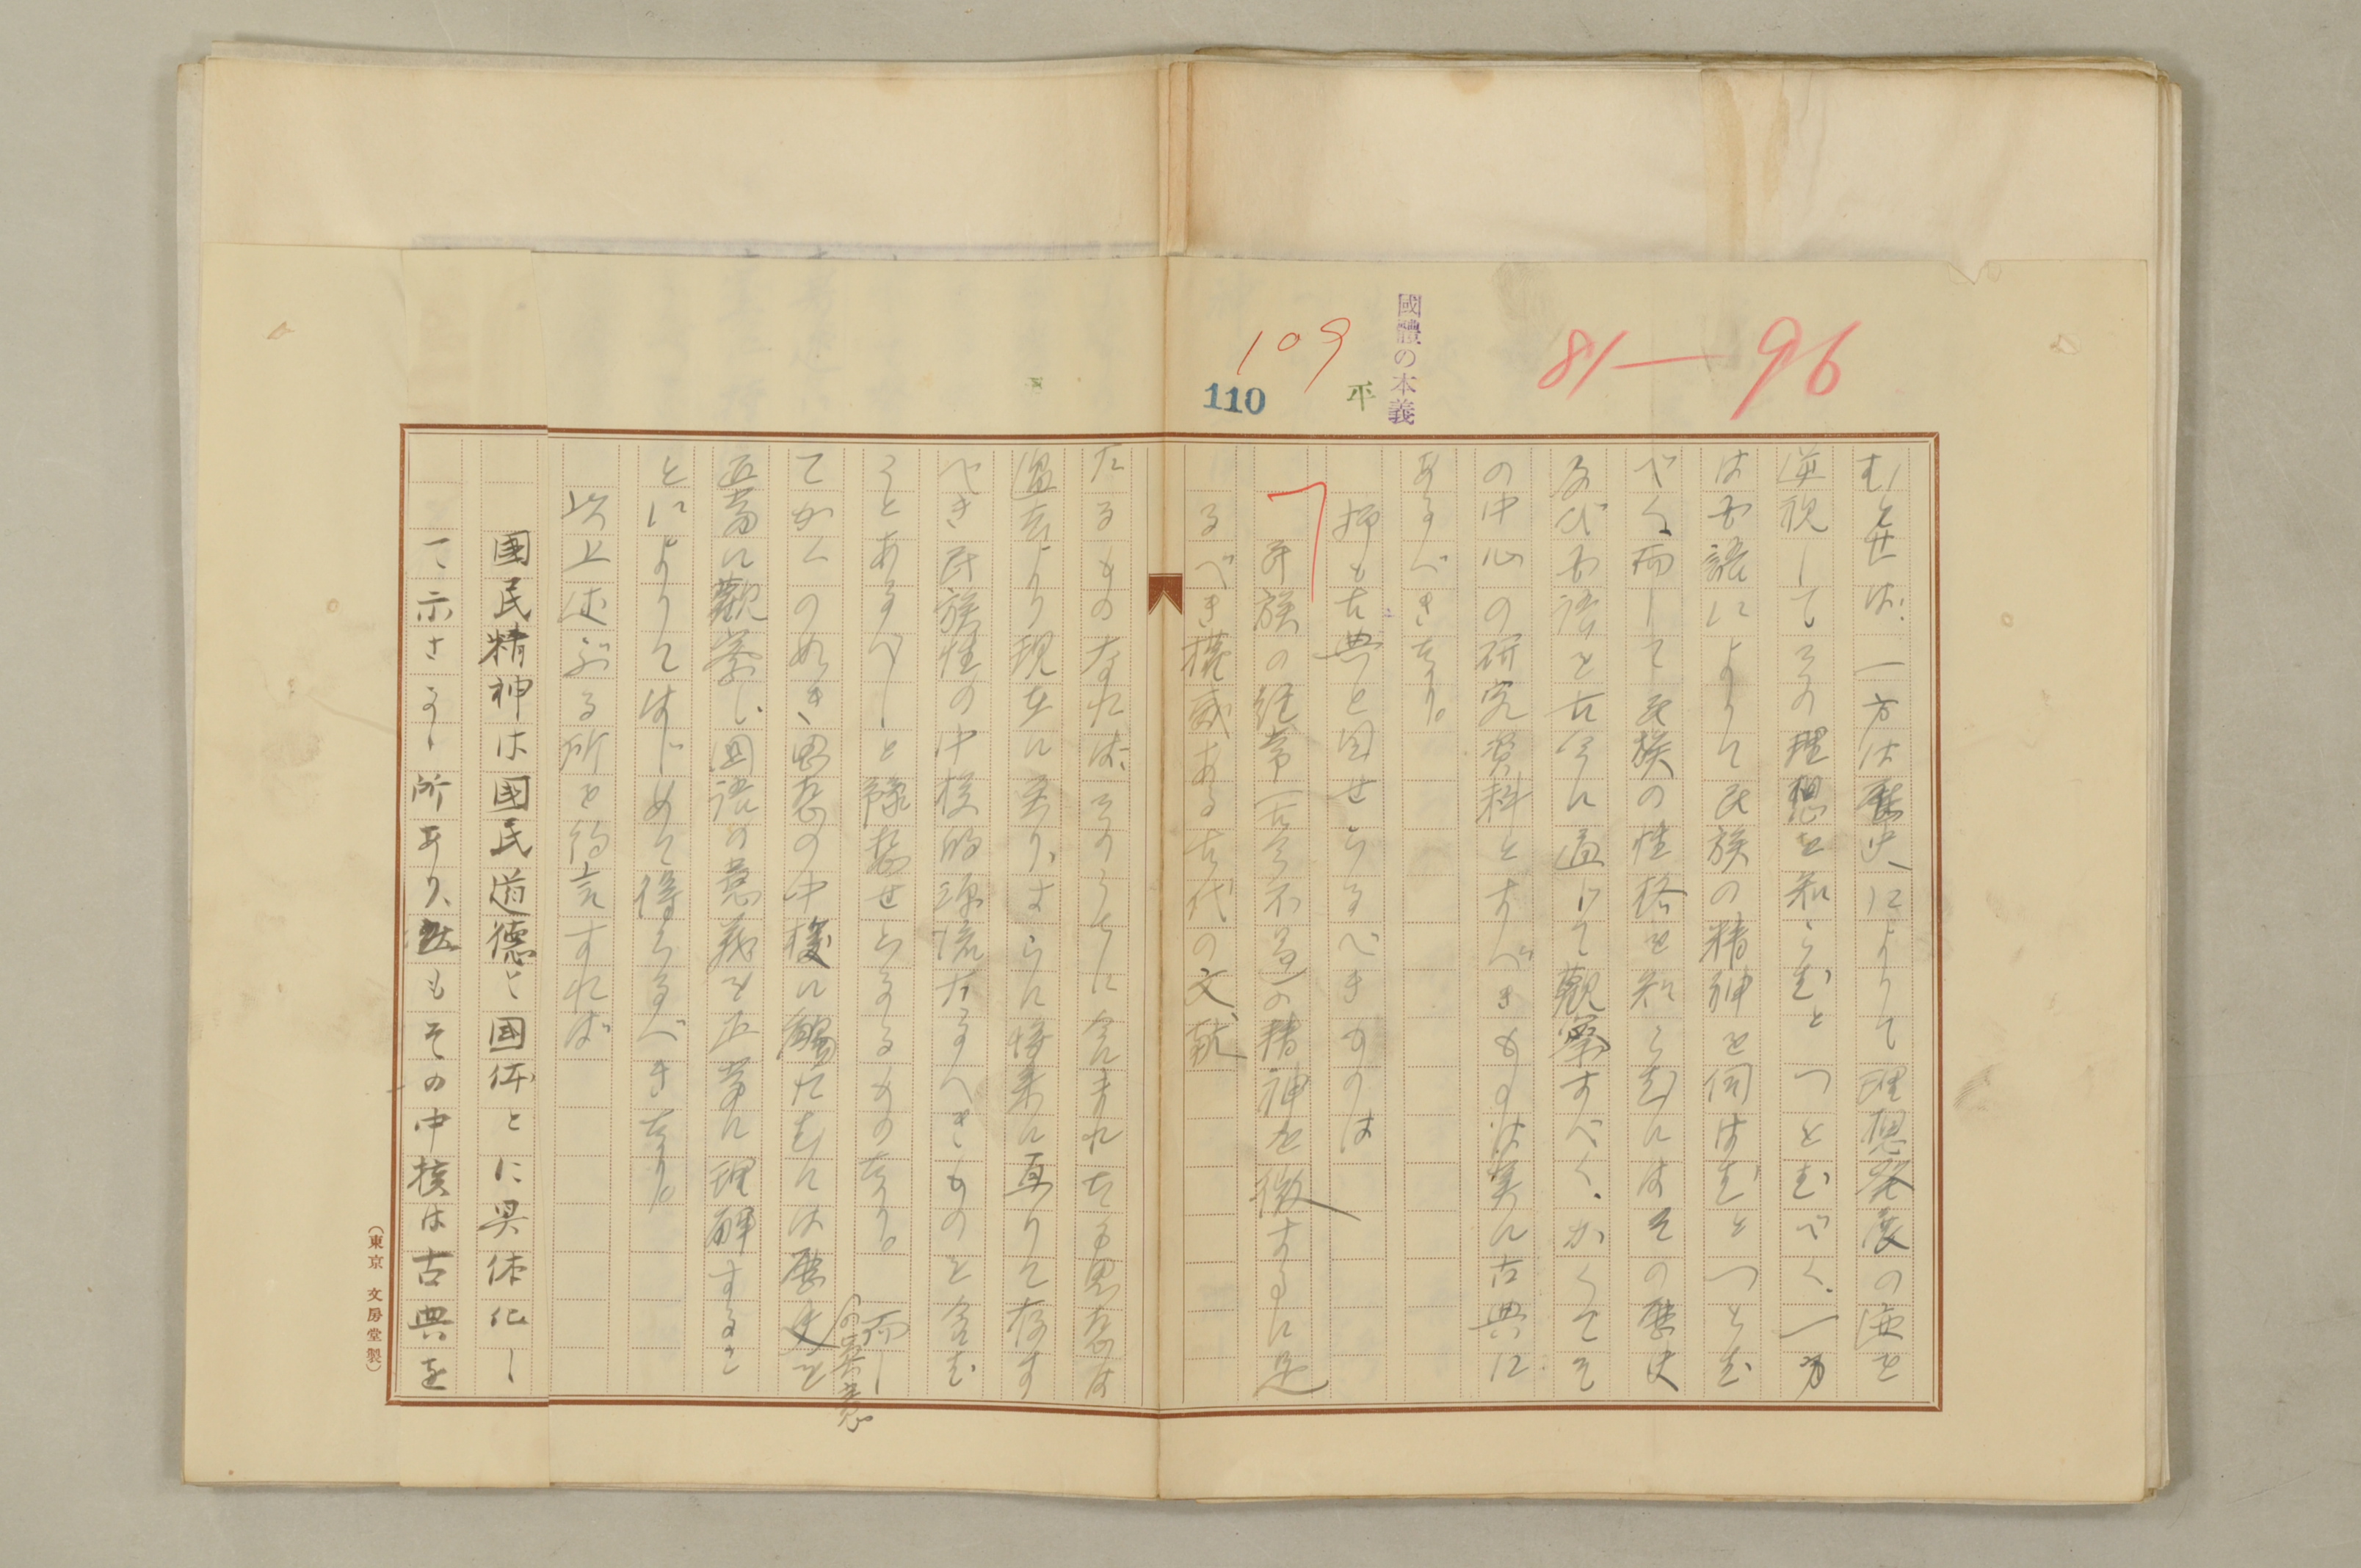 81―96
國體の本義
平
109
110
むとせば、一方は歴史によりて理想発展の迹を
逆視してその理想を知らむとつとむべく、一方
は国語によりて民族の精神を伺はむとつとむ
べく、而して民族の性格を知らむにはその歴史
及び国語を古今に通じて觀察すべく、かくてそ
の中心の研究資料とすべきものは実に古典に
あるべきなり。
抑も古典と目せらるべきものは
民族の経常一古今不易の精神を徴するに足
るべき権威ある古代の文献
たるものなれば、そのうちに含まれたる思想は
過去より現在に亙り、さらに将来に亙りて存す
べき民族性の中核的源流たるべきものを含む
ことあるべしと豫想せらるるものなり。而し
てかくの如き思想の中核に觸れむには歴史を
の真意
正當に觀察し、国語の意義を正當に理解するこ
とによりてはじめて得らるべきなり。
以上述ぶる所を約言すれば
國民精神は國民道德と国体とに具体化し
て示さるゝ所あり、然もその中核は古典を
(東京 文房堂製)